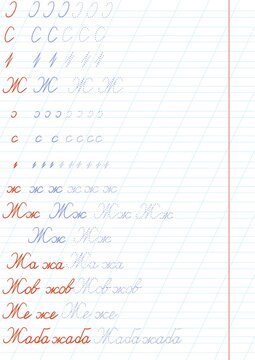 С С С С С С
Ж Ж Ж Ж
с с с с с с с
ж ж ж ж ж ж ж
Жж Жж Жж Жж
Жж Жж
Жа жа Жа жа
Жов жов Жов жов
Же же Же же
Жаба жаба Жаба жаба